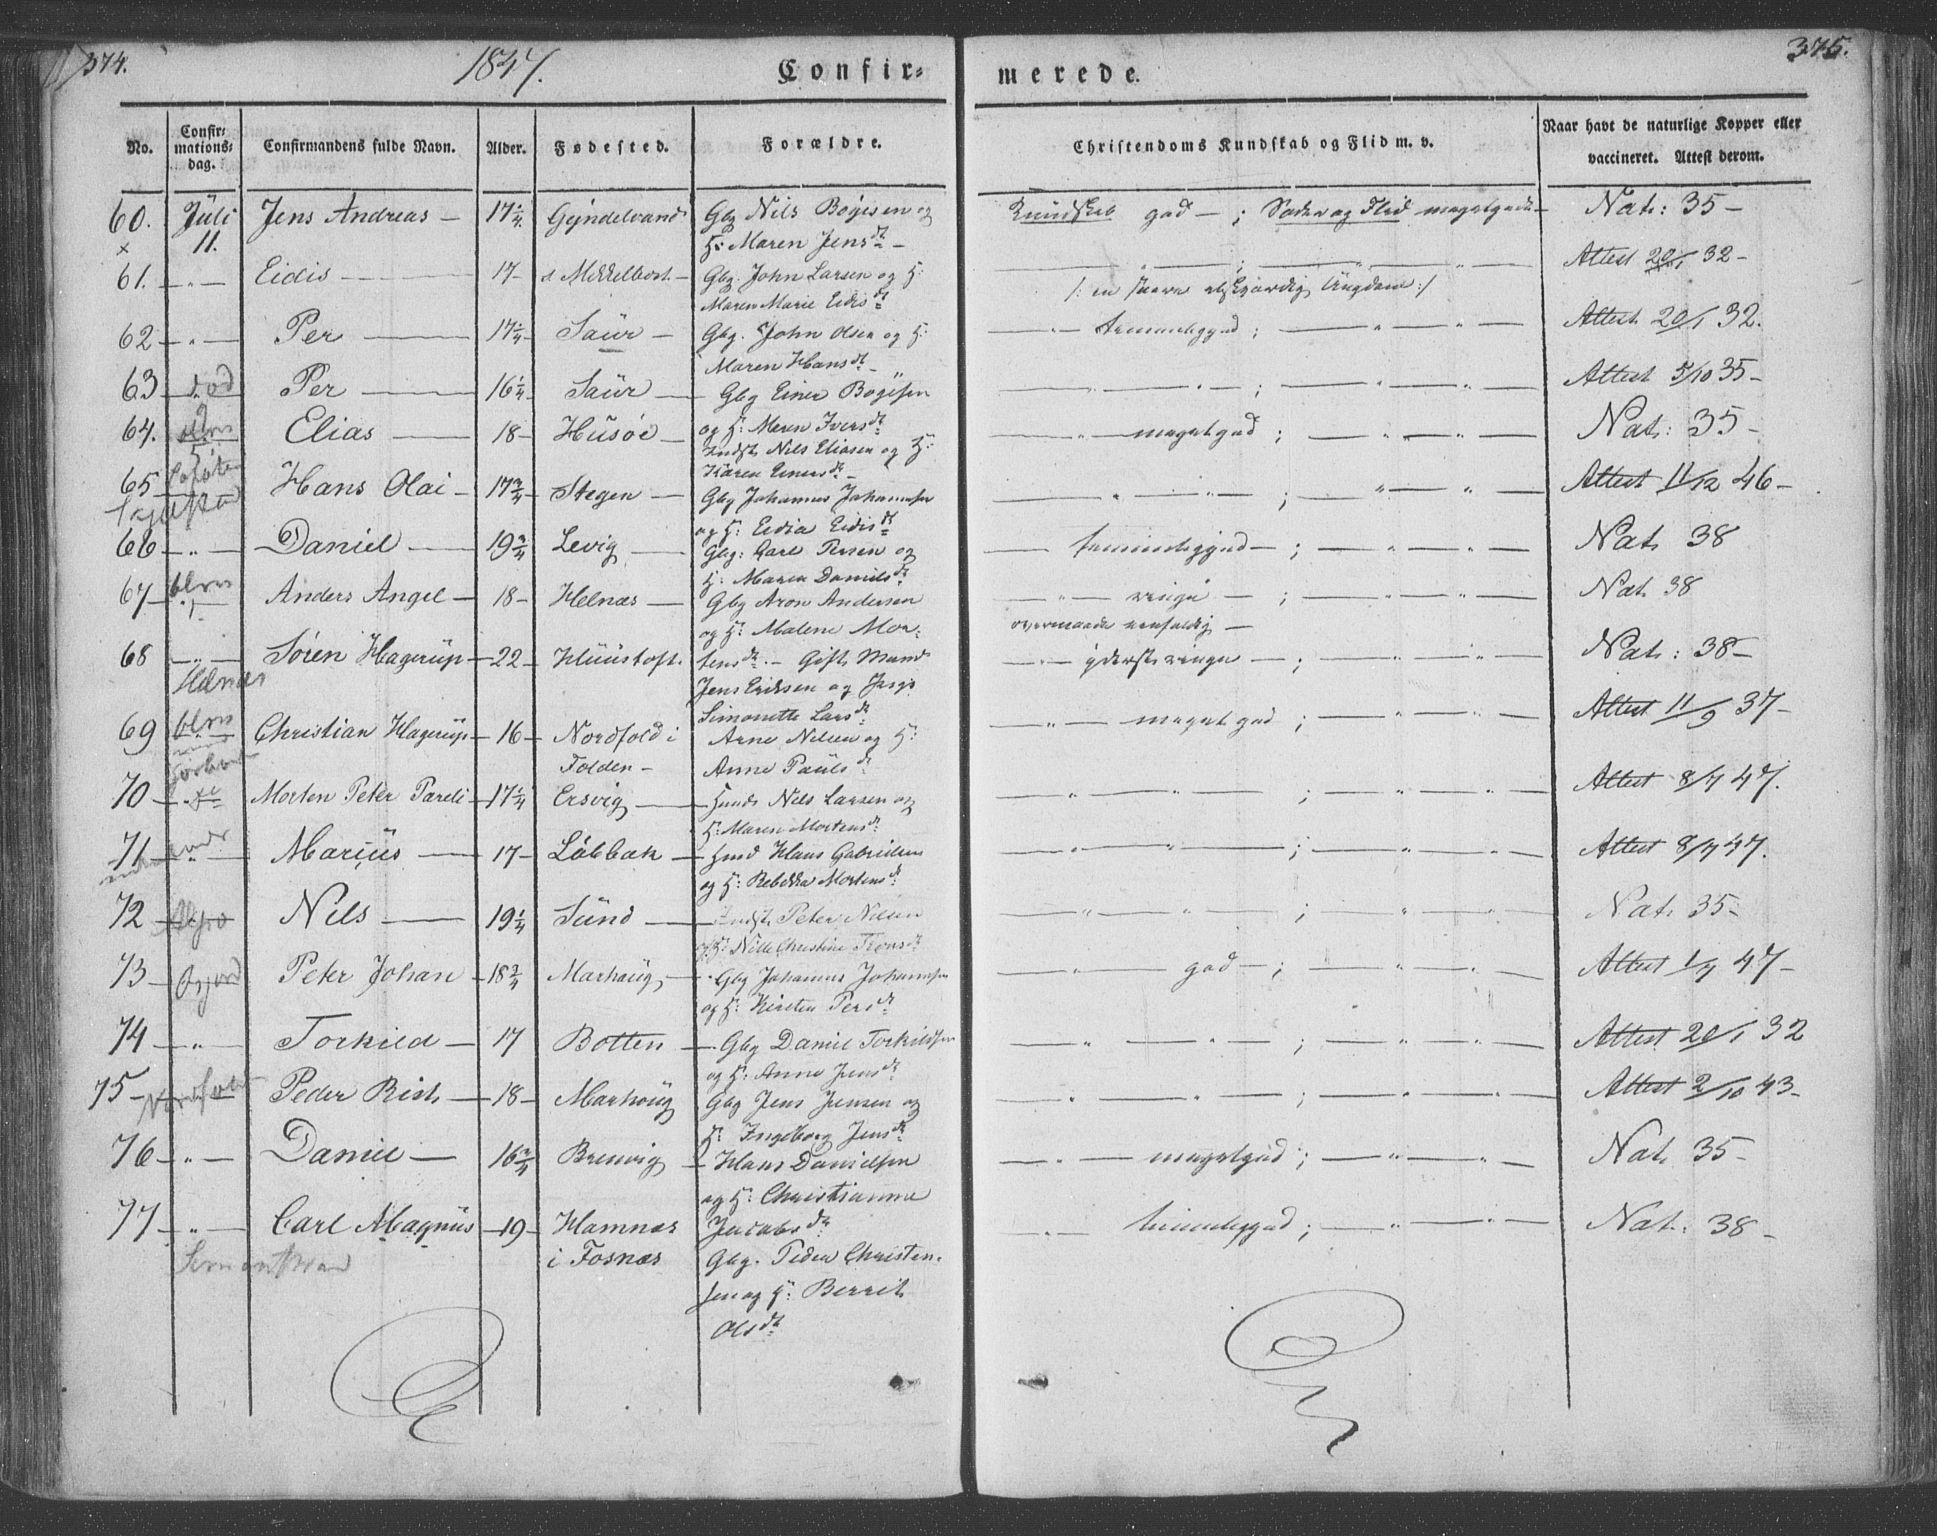 374. 1847. Confir= merede. 375.
No. Confir= mations= dag. Confirmandens fulde Navn. Alder. Fødested. Forældre. Christendoms Kundskab og Flid m. v. Naar havt de naturlige Kopper eller vaccineret. Attest derom.
60. Juli 11. Jens Andreas — 17 1/4 Gyndelvand Gbg Nils Bøgesen og Kundskab god — ; Sæder og Flid megetgode — Nat: 35 —
H: Maren Jensdt —
61. — " — Eidis — 17 — Mikkelbost — Gbg. John Larsen og H: — " — ; — " — " — Attest 20/1 32 —
Maren Marie Eidisdt /: en Ungdom :/
62 — " — Per — 17 1/4 Saur — Gbg. John Olsen og H: — " — temmeliggod ; — " — " — Attest 20/1 32.
Maren Hansdt —
63 død Per — 16 1/4 Saur — Gbg Einer Bøgesen — " — " — ; — " — " — Attest 5/10 35 —
64. Elias — 18 — Husøe — og H: Maren Iversdt — " — megetgod ; — " — " — Nat: 35 —
Indst Nils Eliasen og H:
Karen Einersdt —
65 Hans Olai — 17 3/4 Stegen — Gbg Johannes Johannesen — " — " — ; — " — " — Attest 11/12 46 —
og H: Eidia Eidisdt
66 — " — Daniel — 19 3/4 Levig — Gbg: Carl Persen og — temmeliggod — ; — " — " — Nat. 38
H: Maren Danielsdt
67 — Anders Angel — 18 — Helnæs — Gbg Aron Andersen — " — ringe — ; — " — " — Nat. 38
og H: Malene Mor= overmaade eenfoldig —
68 — " — Søren Hagerup — 22 — Kluustoft. tensdt. — Gift Mand — " — yderst ringe — ; — " — " — Nat: 38 —
Helnæs Jens Eriksen og
Simonette Larsdt
69 Christian Hagerup — 16 — Nordfold i Arne Nilsen og H: — " — meget god ; — " — " — Attest 11/9 37 —
Folden — Anne Paulsdt
70 — Morten Peter Pareli — 17 1/4 Ersvig — Nils Larsen og — " — " — ; — " — " — Attest 8/7 47.
H: Maren Mortensdt
71 — Marius — 17 — Løbbak — Hans Gabrielsen — " — " — ; — " — " — Attest 8/7 47.
og H: Rebekka Mortensdt
72 — Nils — 19 1/4 Sund — Indst. Peter Nilsen — " — " — ; — " — " — Nat. 35 —
og H: Nille Christine Tronsdt
73 — Peter Johan — 18 3/4 Marhaug — Gbg Johannes Johannesen — " — god — ; — " — " — Attest 1/7 47 —
og H: Kirsten Persdt
74 — " — Torkild — 17 Botten — Gbg Daniel Torkildsen — " — " — ; — " — " — Attest 20/1 32
og H: Anne Jensdt
75 — Nordfold Peder Rist — 18 — Marhoug Gbg Jens Jensen og — " — " — ; — " — " — Attest 2/10 43 —
H: Ingeborg Jensdt
76 — " — Daniel — 16 3/4 Brenvig — Hans Danielsen — " — megetgod ; — " — " — Nat. 35 —
og H: Christianne
77 — " — Carl Magnus — 19 — Hamnæs Jacobsdt — " — temmeliggod ; — " — " — Nat: 38 —
i Fosnæs Gbg. Peder Christen=
sen og H: Berrit
Olsdt